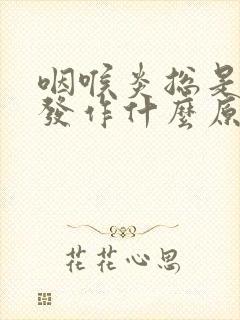 咽喉炎总是
發作什麼原
花花心思